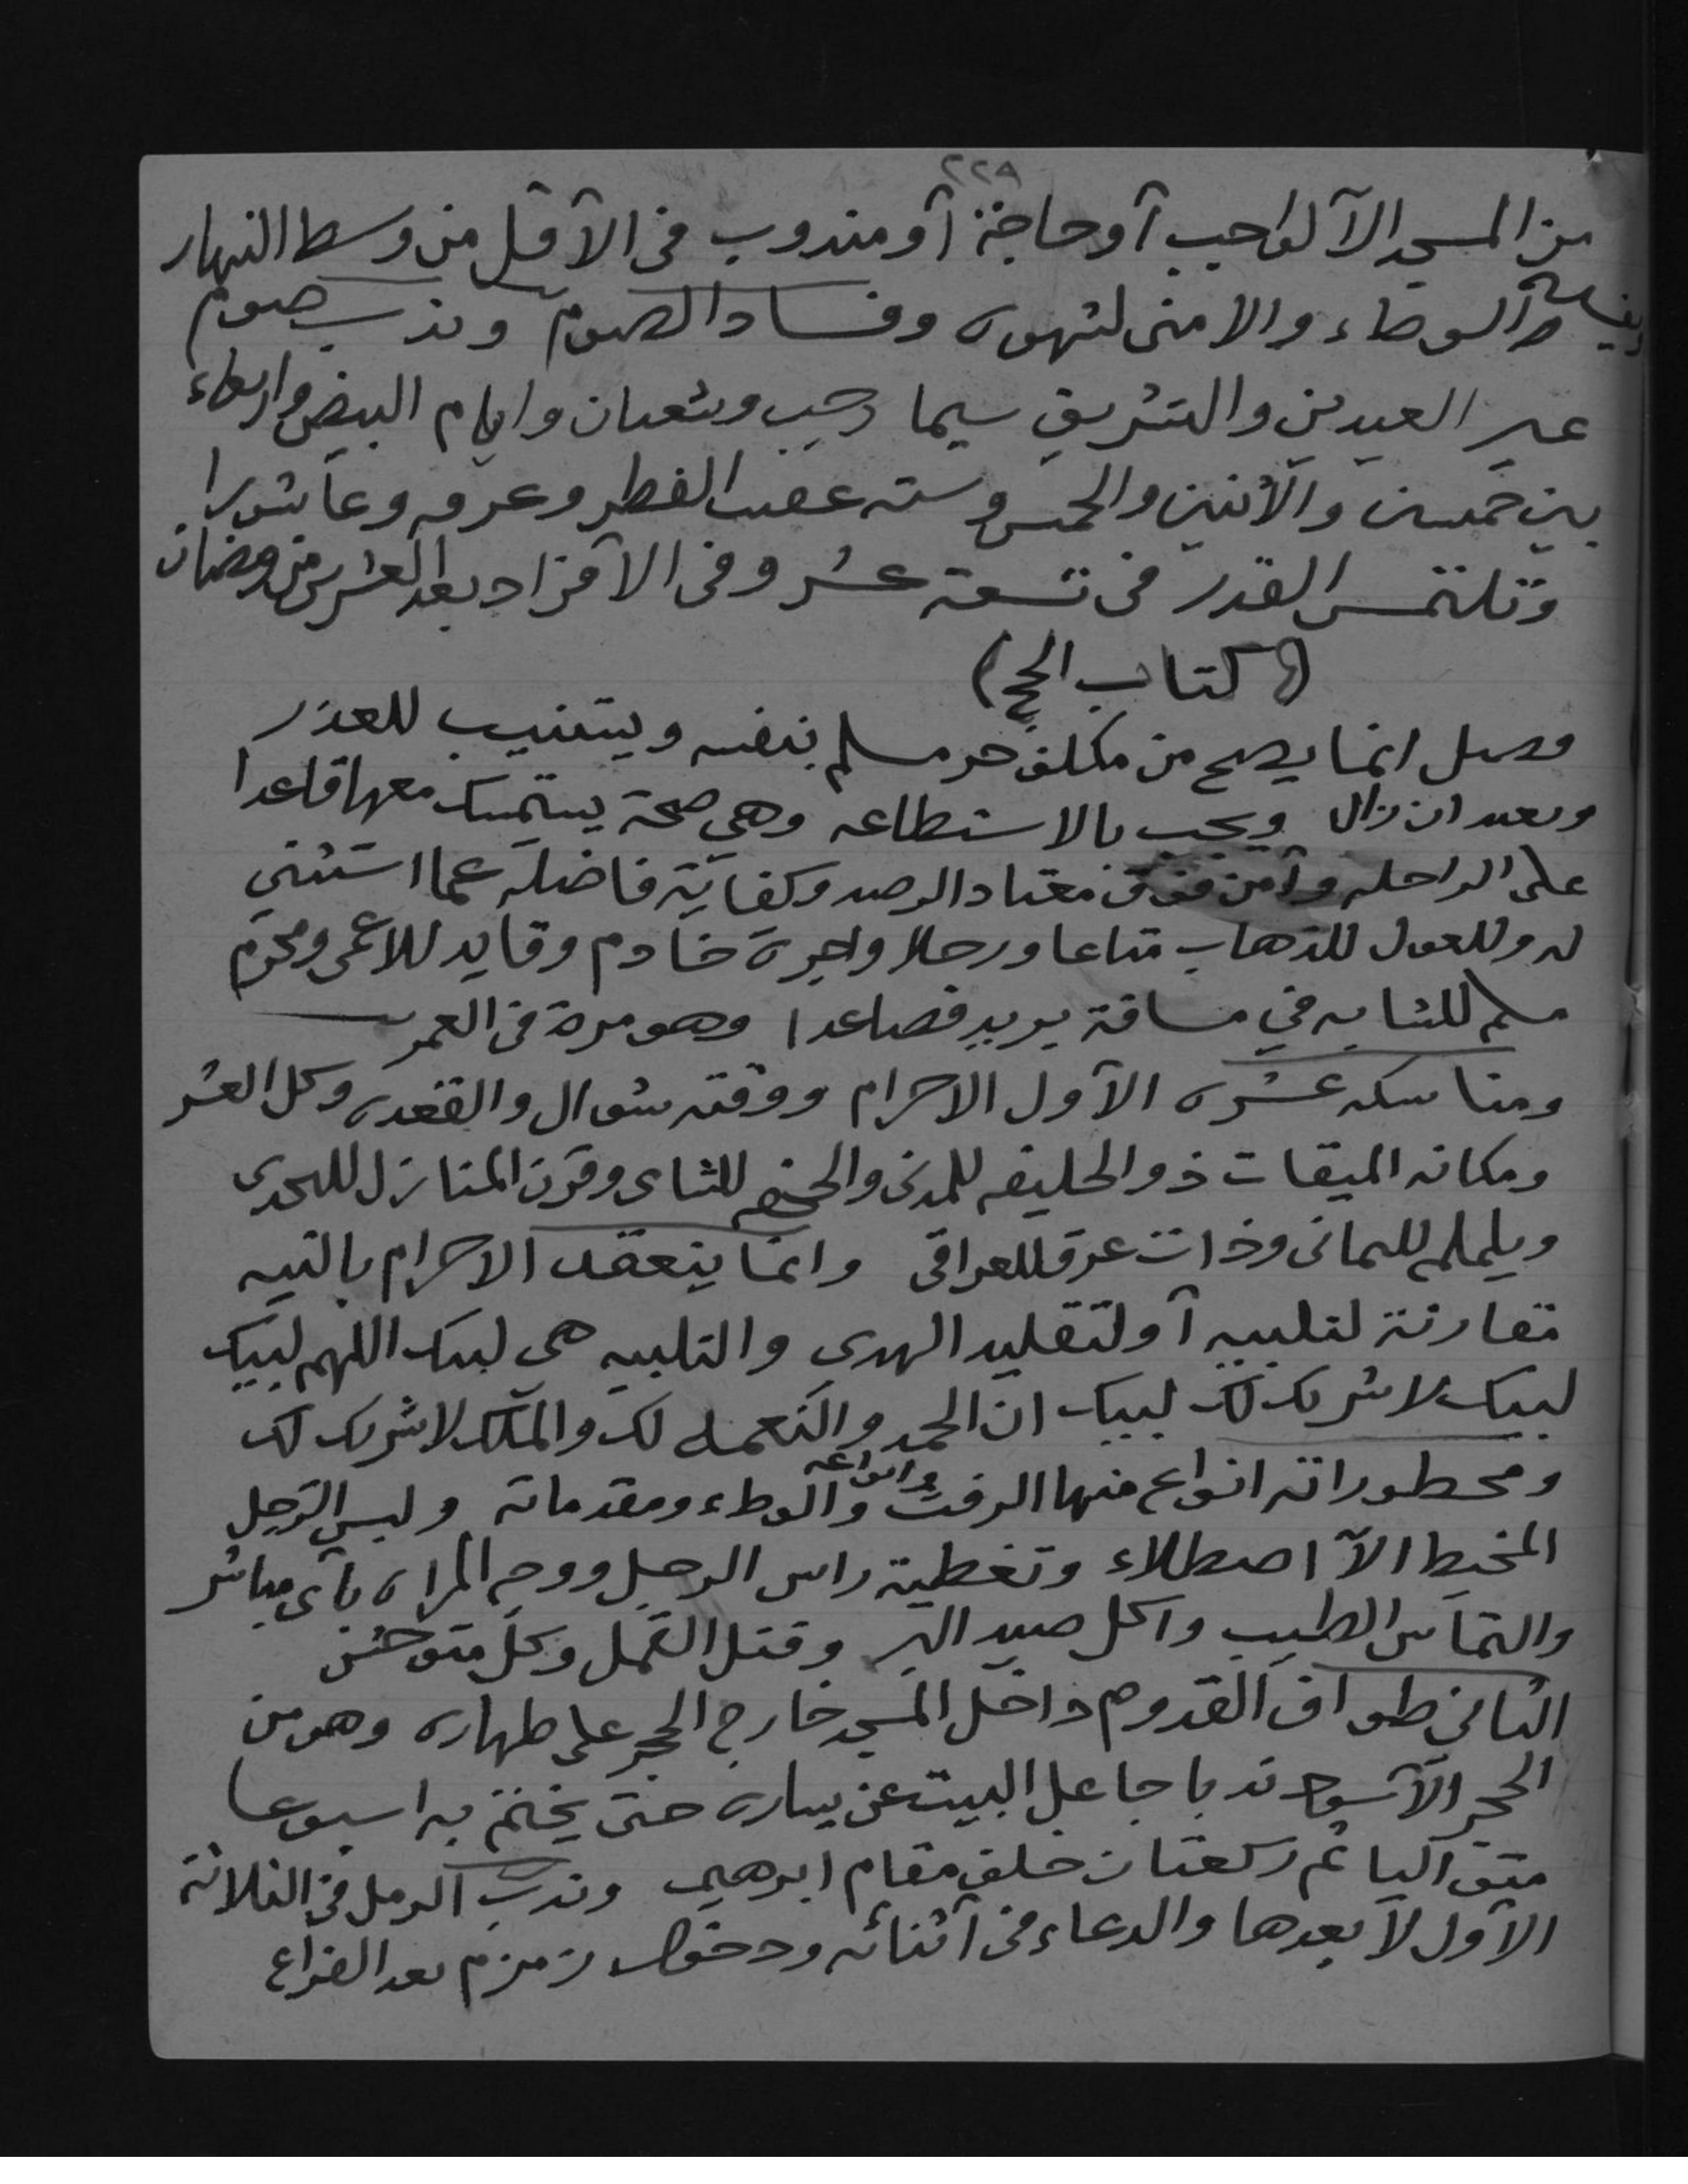 ٢٢٩
من المسجد الآ لواجب آو حاجة آو مندوب فى الآقل من وسط النهار
ويفسده الوطاء والامنى لشهوه وفساد الصوم وندب صوم
غير العيدين والتشريق سيما رجب وشعبان وايام البيض واربعاء
بين خميسين والآثنين والخميس وسته عقيب الفطر وعرفه وعاشورا
وتلتمس القدر فى تسعة عشر وفى الآفراد بعد العشرين من رمضان
(كتاب الحج)
فصل انما يصح من مكلف حر مسلم بنفسه ويستنيب للعذر
ويعيد ان زال ويجب بالاستطاعه وهى صحة يستمسك معها قاعدا
على الراحله وآمن فوق معتاد الرصد وكفاية فاضله عما استثني
له وللعول للذهاب متاعا ورحلا واجرة خادم وقايد للاعمى ومحرم
مسلم للشابه في مسافة بريد فصاعدا وهو مرة فى العمر
ومناسكه عشره الآول الاحرام ووقته شوال والقعده وكل العشر
ومكانه الميقات ذو الحليفه للمدنى والجحفه للشامى وقرن المنازل للنجدى
ويلملم لليمانى وذات عرق للعراقى وانما ينعقد الاحرام بالنيه
مقارنة لتلبيه آو لتقليد الهدي والتلبيه هى لبيك اللهم لبيك
لبيك لا شريك لك لبيك ان الحمد والنعمه لك والملك لا شريك لك
ومحظوراته انواع منها الرفث وانواعه والوطاء ومقدماته ولبس الرجل
المخيط الآ اصطلاء وتغطية راس الرجل ووجه المراه بآى مباشر
والتماس الطيب واكل صيد البر وقتل القمل وكل متوحش
الثانى طواف القدوم داخل المسجد خارج الحجر على طهاره وهو من
الحجر الآسود ندبا جاعل البيت عن يساره حتى يختم به اسبوعا
متواليا ثم ركعتان خلف مقام ابرهيم وندب الرمل فى الثلاثة
الآول لا بعدها والدعاء فى آثنائه ودخول زمزم بعد الفراغ